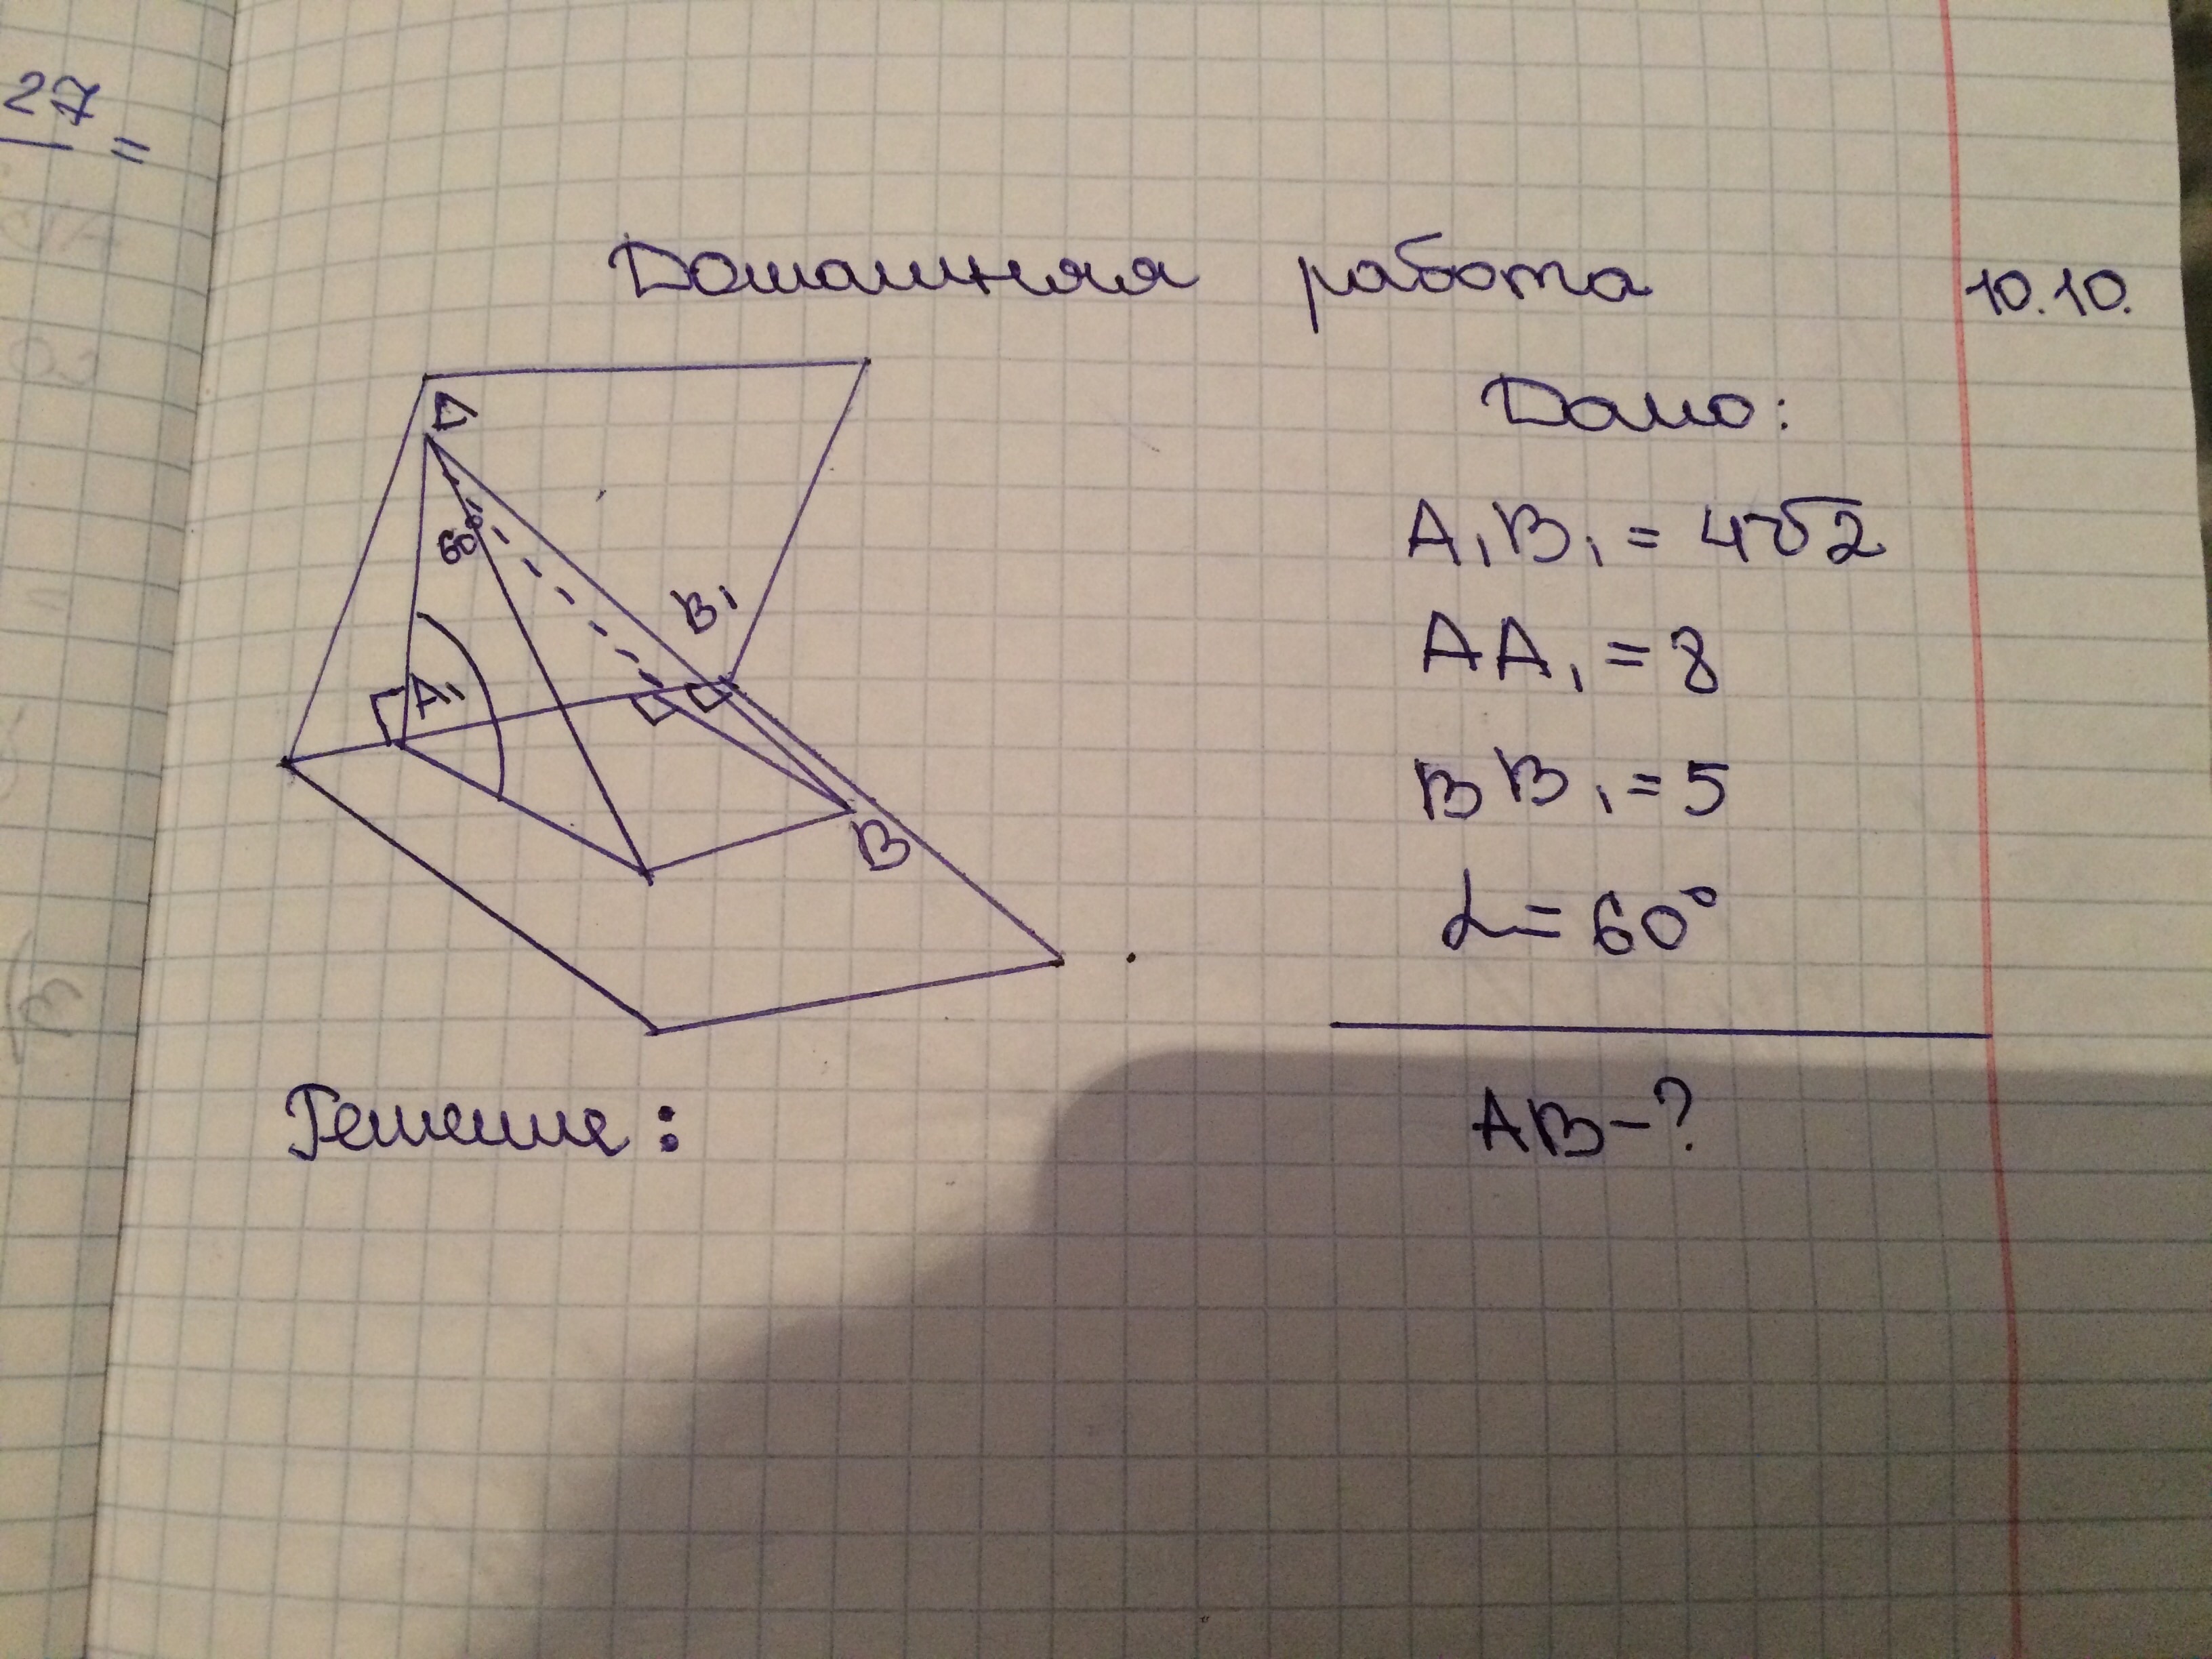 27
=
Домашняя работа 10.10.
D
60°
B₁
A₁
B
Дано:
A₁B₁ = 4√2
AA₁ = 8
BB₁ = 5
α = 60°
AB-?
Решение: